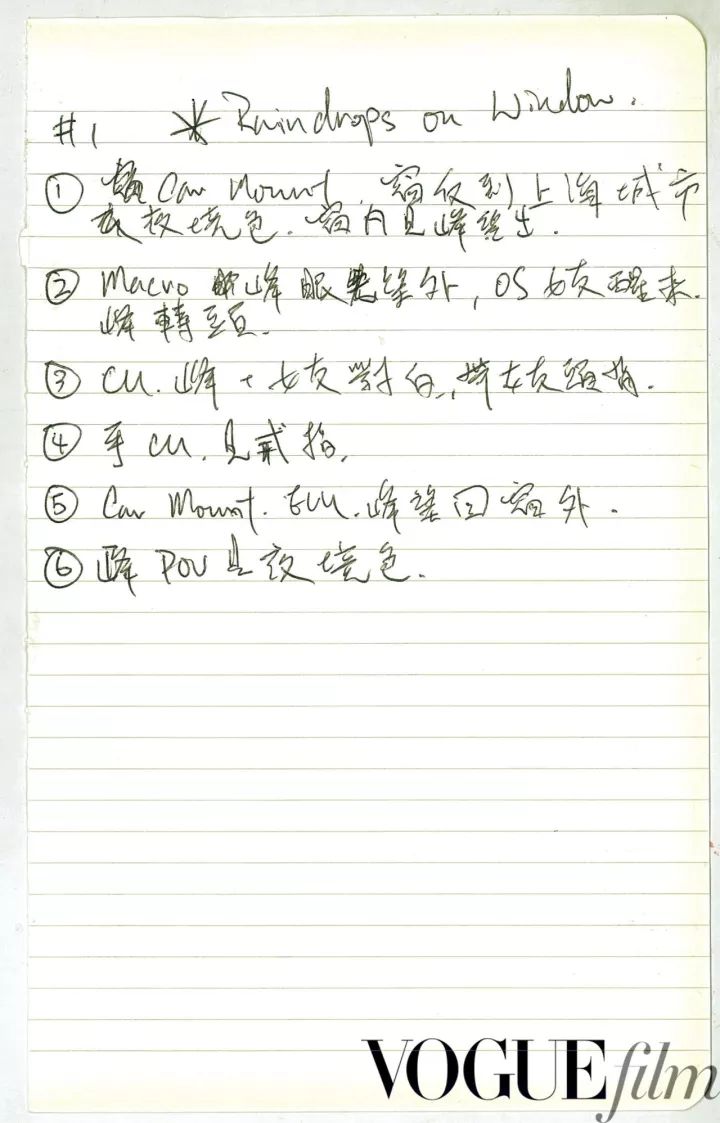 #1 * Raindrops on Window.
① Car Mount. 窗反到上海城市
夜境色. 窗内見峰望出.
② Macro 峰眼望外, OS女友醒來.
峰轉頭.
③ CU. 峰+女友對白, 女友
④ 手CU. 見戒指.
⑤ Car Mount. ECU. 峰望回窗外.
⑥ 峰POV 見夜境色.
VOGUE film